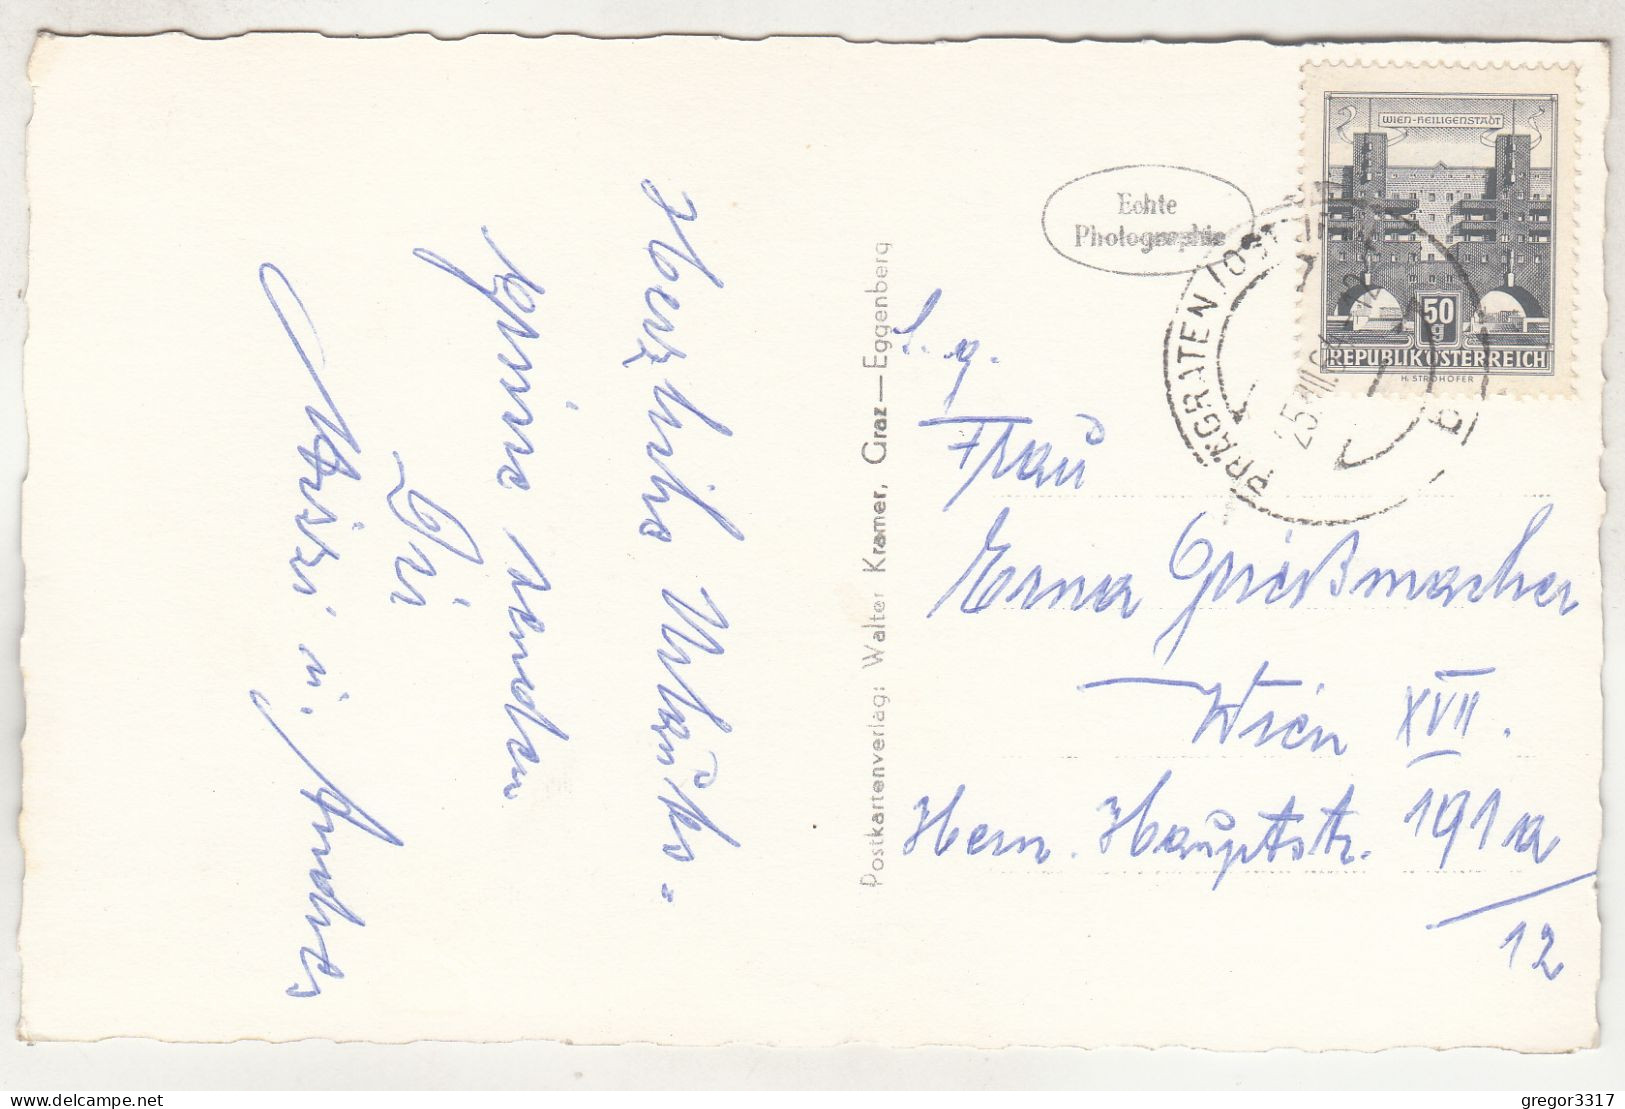 Herzliche Urlaubs=
grüße senden
Dir
Mitzi u. Andres
Postkartenverlag: Walter Kramer, Graz—Eggenberg
Echte
Photographie
WIEN-HEILIGENSTADT
50
g
REPUBLIK ÖSTERREICH
H. STROHOFER
PRÄGRATEN / OST
S. g.
Frau
Erna Grießmacher
Wien XVII.
Hern. Hauptstr. 191a
/12
delcampe.net
gregor3317